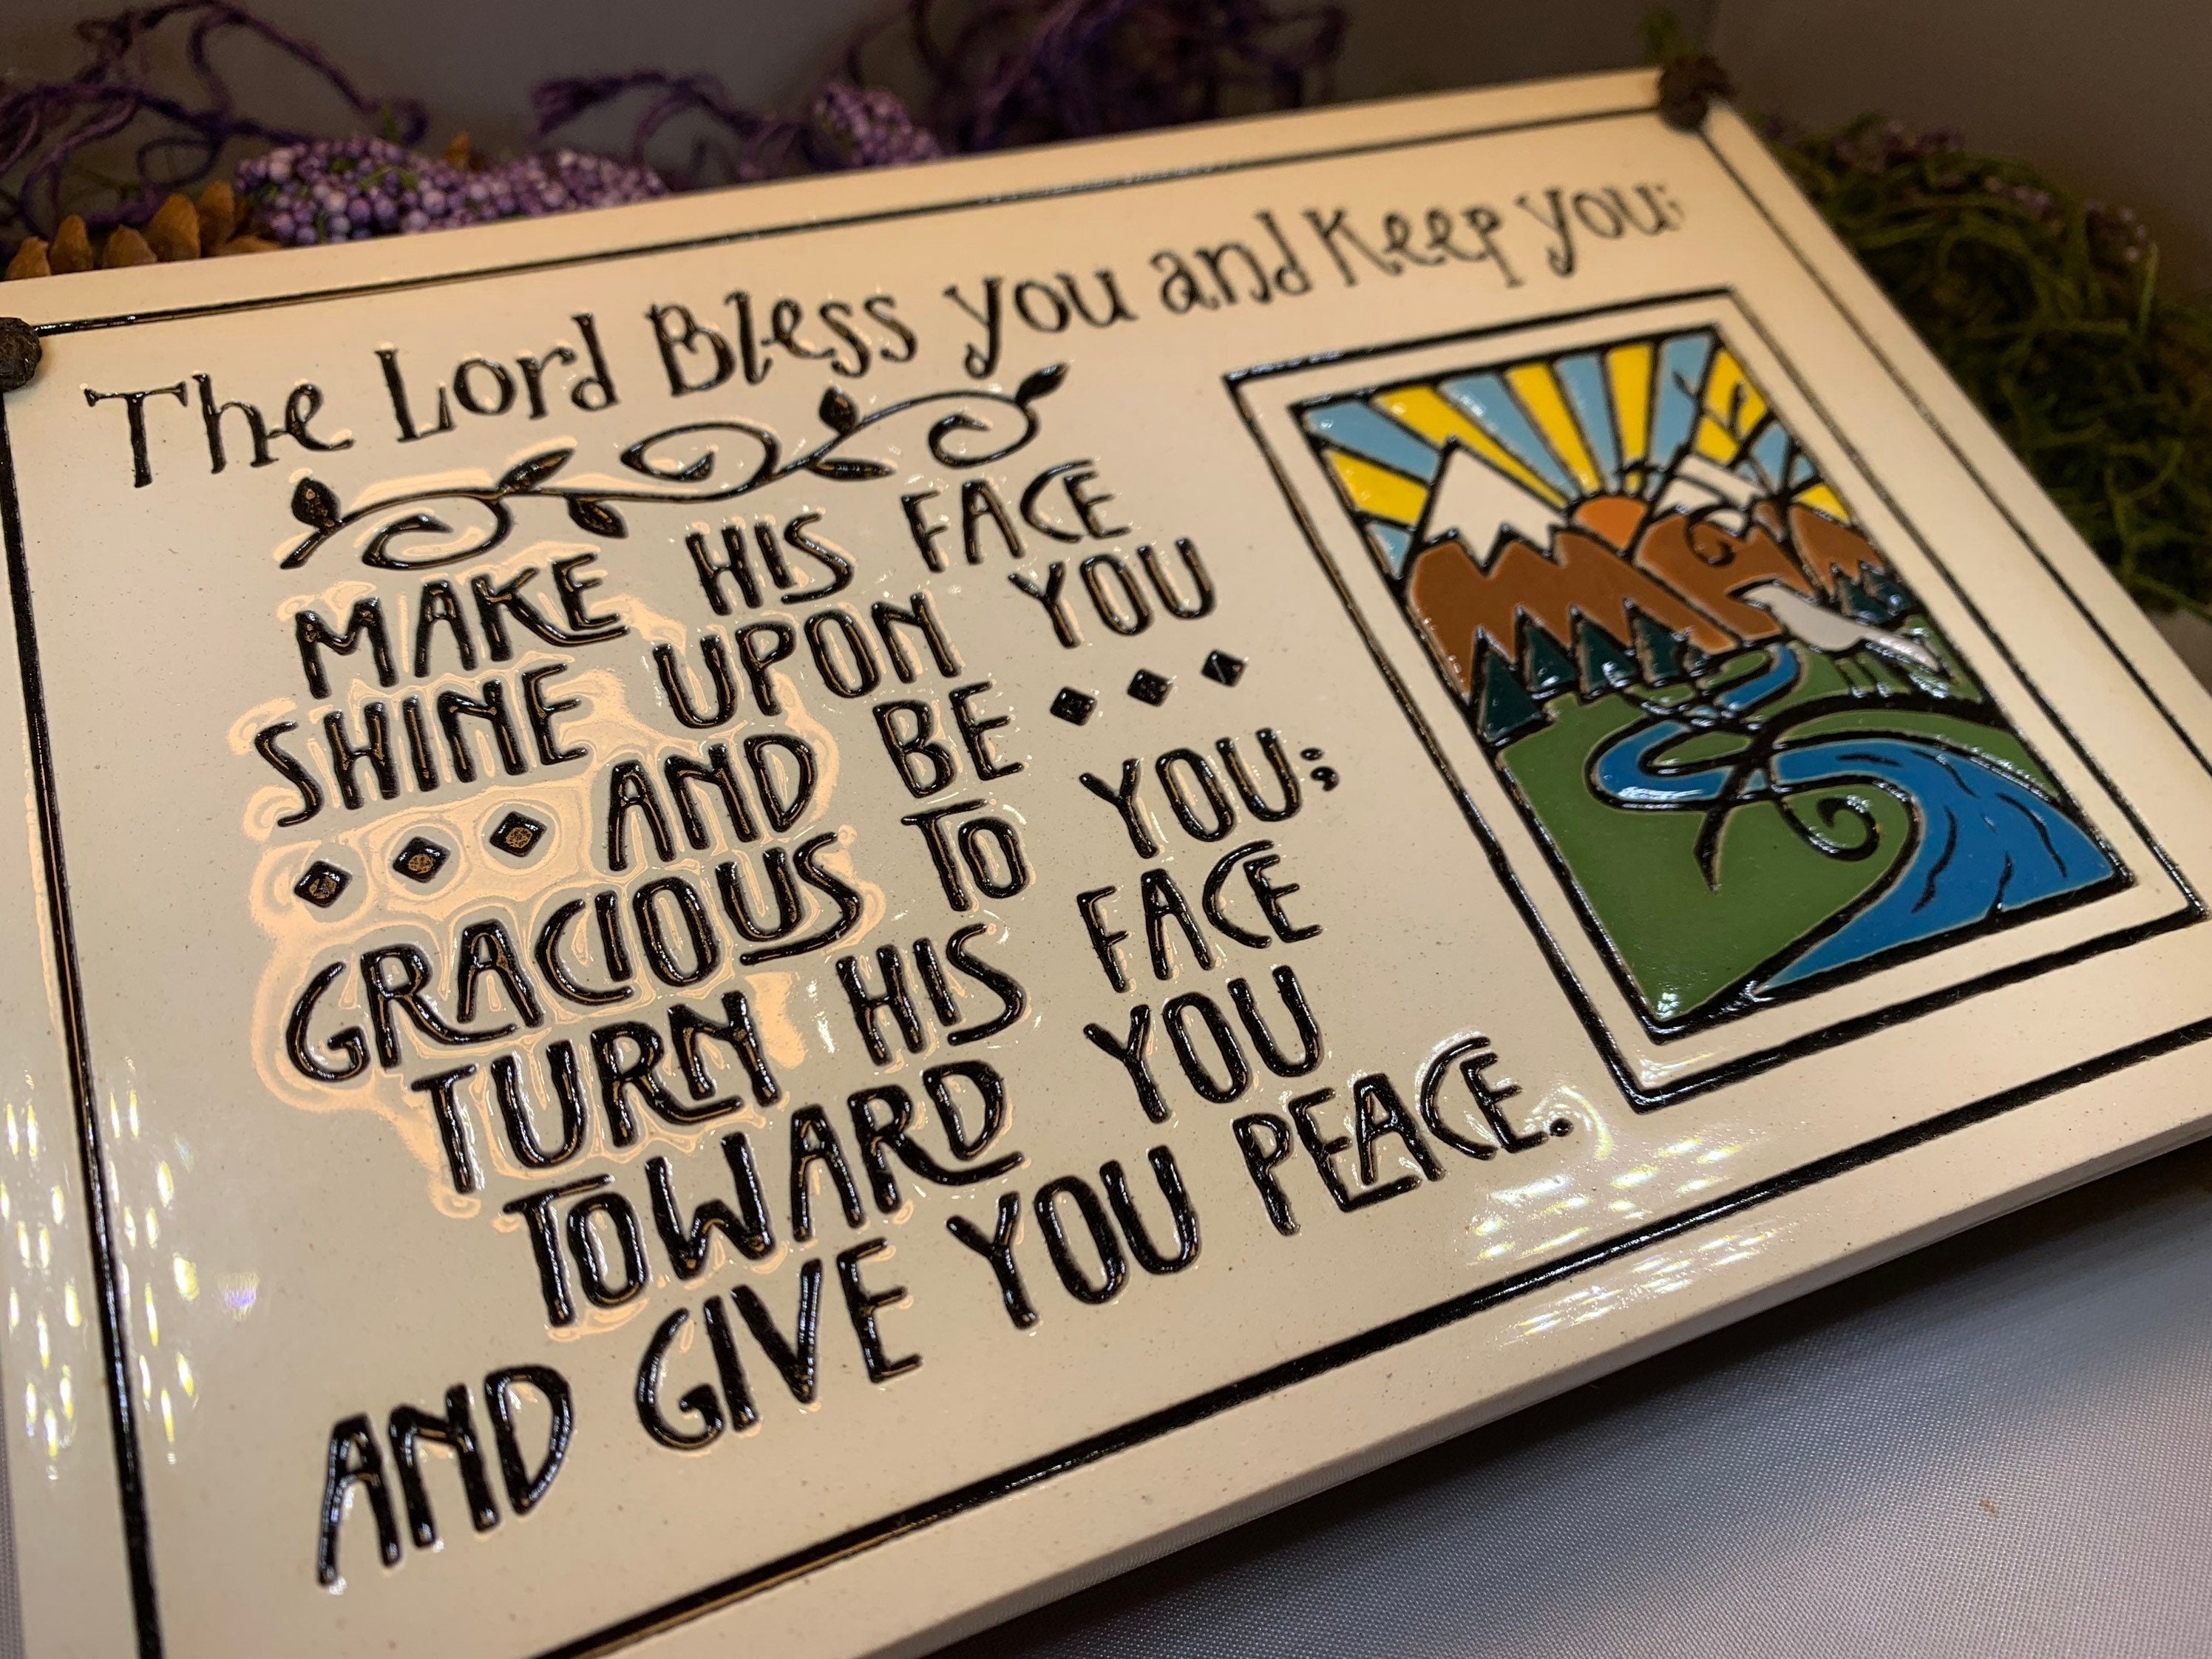 The Lord Bless you and Keep you;
MAKE HIS FACE
SHINE UPON YOU
AND BE
GRACIOUS TO YOU;
TURN HIS FACE
TOWARD YOU
AND GIVE YOU PEACE.